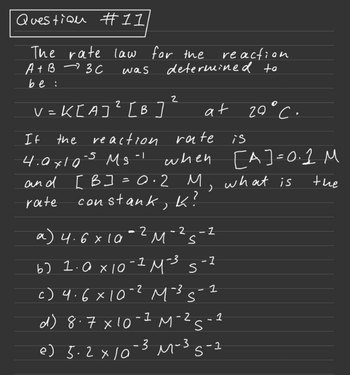 Question #11
The rate law for the reaction
A+B → 3C was determined to
be :
V = K[A]² [B]² at 20°C.
If the reaction rate is
4.0x10⁻⁵ Ms⁻¹ when [A]=0.1 M
and [B] = 0.2 M, what is the
rate constank, K?
a) 4.6 x 10⁻² M⁻² s⁻¹
b) 1.0 x 10⁻¹ M⁻³ s⁻¹
c) 4.6 x 10⁻² M⁻³ s⁻¹
d) 8.7 x 10⁻¹ M⁻² s⁻¹
e) 5.2 x 10⁻³ M⁻³ s⁻¹